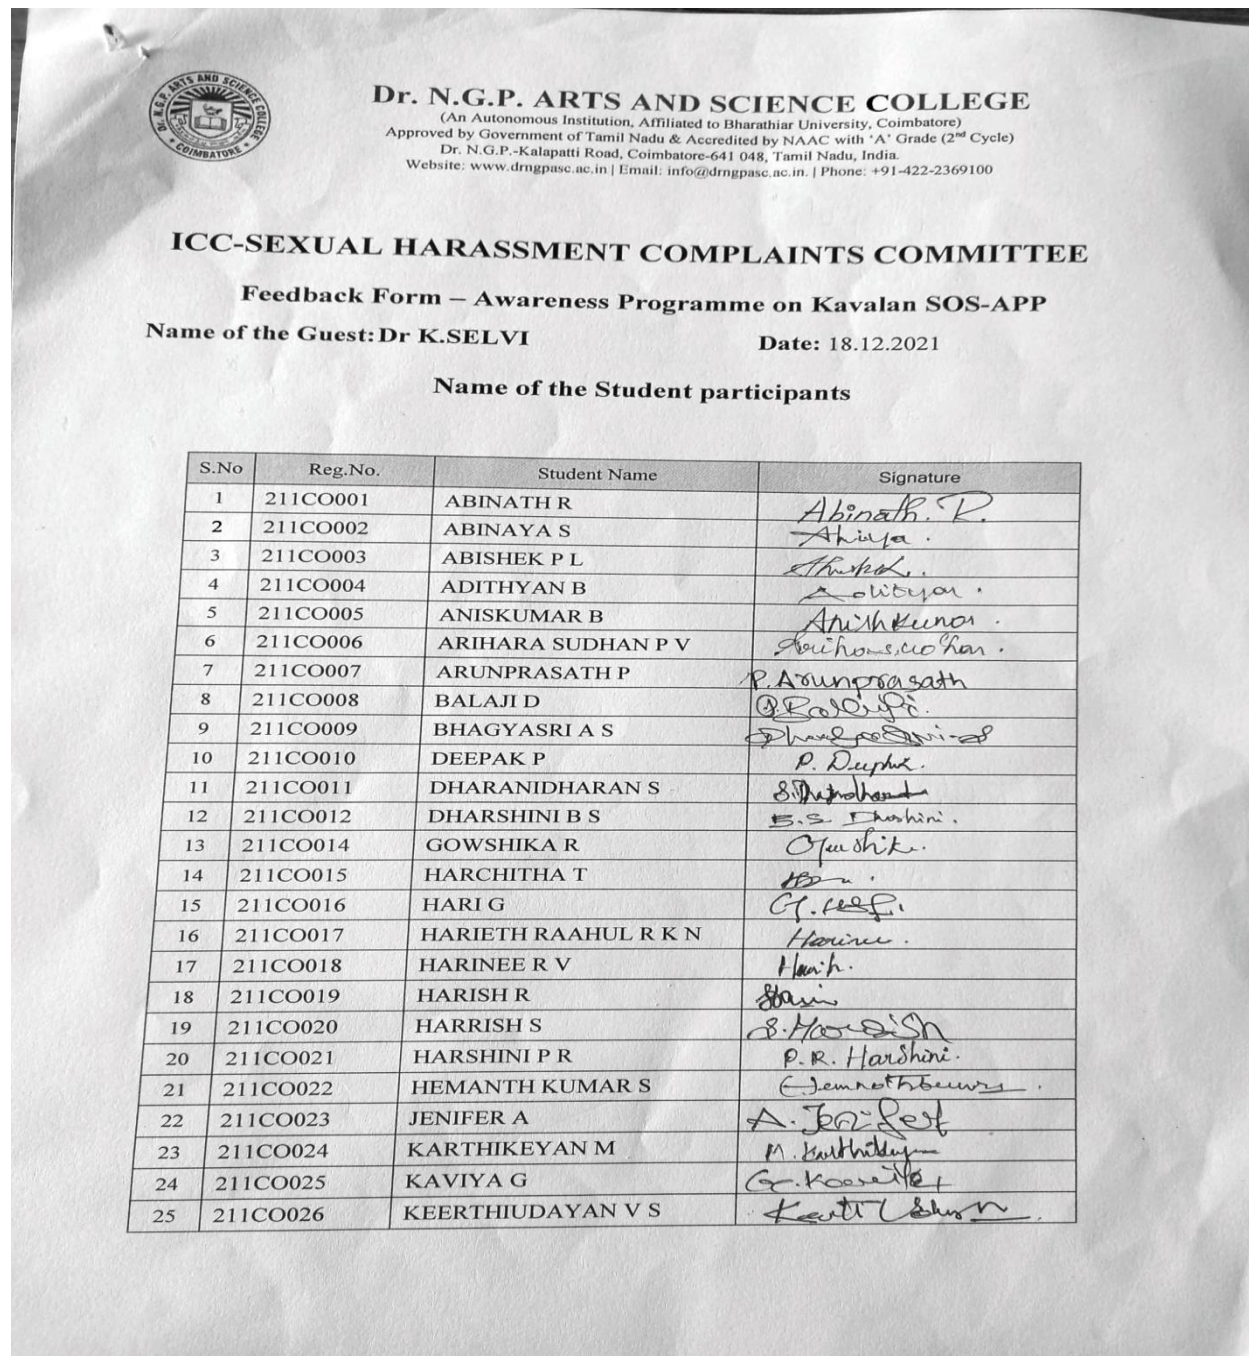 Dr. N.G.P. ARTS AND SCIENCE COLLEGE
COIMBATORE
Dr. N.G.P. ARTS AND SCIENCE COLLEGE
(An Autonomous Institution, Affiliated to Bharathiar University, Coimbatore)
Approved by Government of Tamil Nadu & Accredited by NAAC with 'A' Grade (2nd Cycle)
Dr. N.G.P.-Kalapatti Road, Coimbatore-641 048, Tamil Nadu, India.
Website: www.drngpasc.ac.in | Email: info@drngpasc.ac.in. | Phone: +91-422-2369100
ICC-SEXUAL HARASSMENT COMPLAINTS COMMITTEE
Feedback Form – Awareness Programme on Kavalan SOS-APP
Name of the Guest: Dr K.SELVI Date: 18.12.2021
Name of the Student participants
S.No Reg.No. Student Name Signature
1 211CO001 ABINATH R Abinath. R.
2 211CO002 ABINAYA S
3 211CO003 ABISHEK P L
4 211CO004 ADITHYAN B
5 211CO005 ANISKUMAR B Anishkumar.
6 211CO006 ARIHARA SUDHAN P V
7 211CO007 ARUNPRASATH P P. Arunprasath
8 211CO008 BALAJI D
9 211CO009 BHAGYASRI A S
10 211CO010 DEEPAK P
11 211CO011 DHARANIDHARAN S
12 211CO012 DHARSHINI B S
13 211CO014 GOWSHIKA R
14 211CO015 HARCHITHA T
15 211CO016 HARI G
16 211CO017 HARIETH RAAHUL R K N Harinee.
17 211CO018 HARINEE R V Harish.
18 211CO019 HARISH R
19 211CO020 HARRISH S S. Harrish
20 211CO021 HARSHINI P R P. R. Harshini.
21 211CO022 HEMANTH KUMAR S
22 211CO023 JENIFER A A. Jenifer
23 211CO024 KARTHIKEYAN M
24 211CO025 KAVIYA G
25 211CO026 KEERTHIUDAYAN V S